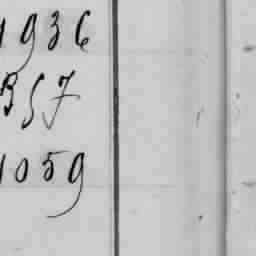 1936
357
1059